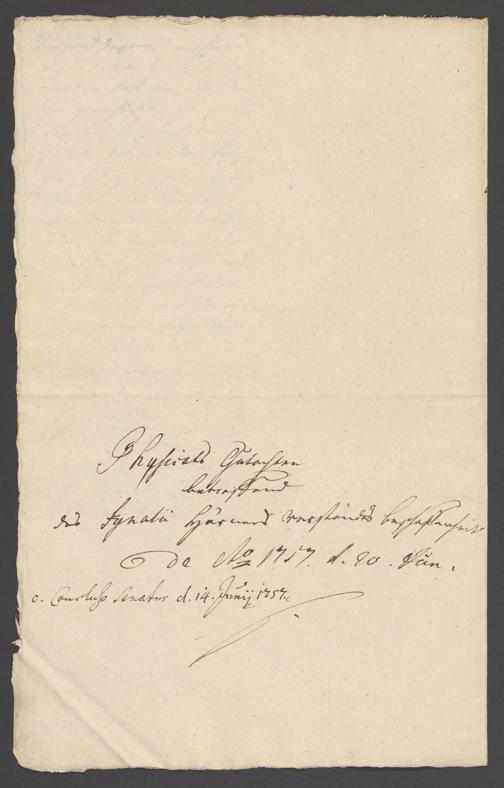 Physicats Gutachten
betreffend
des Ignatii verstands beschaffenheit
de Ao 1757. d. 20. Jun.
c. Concluso Senatus d. 14. Junij 1757.